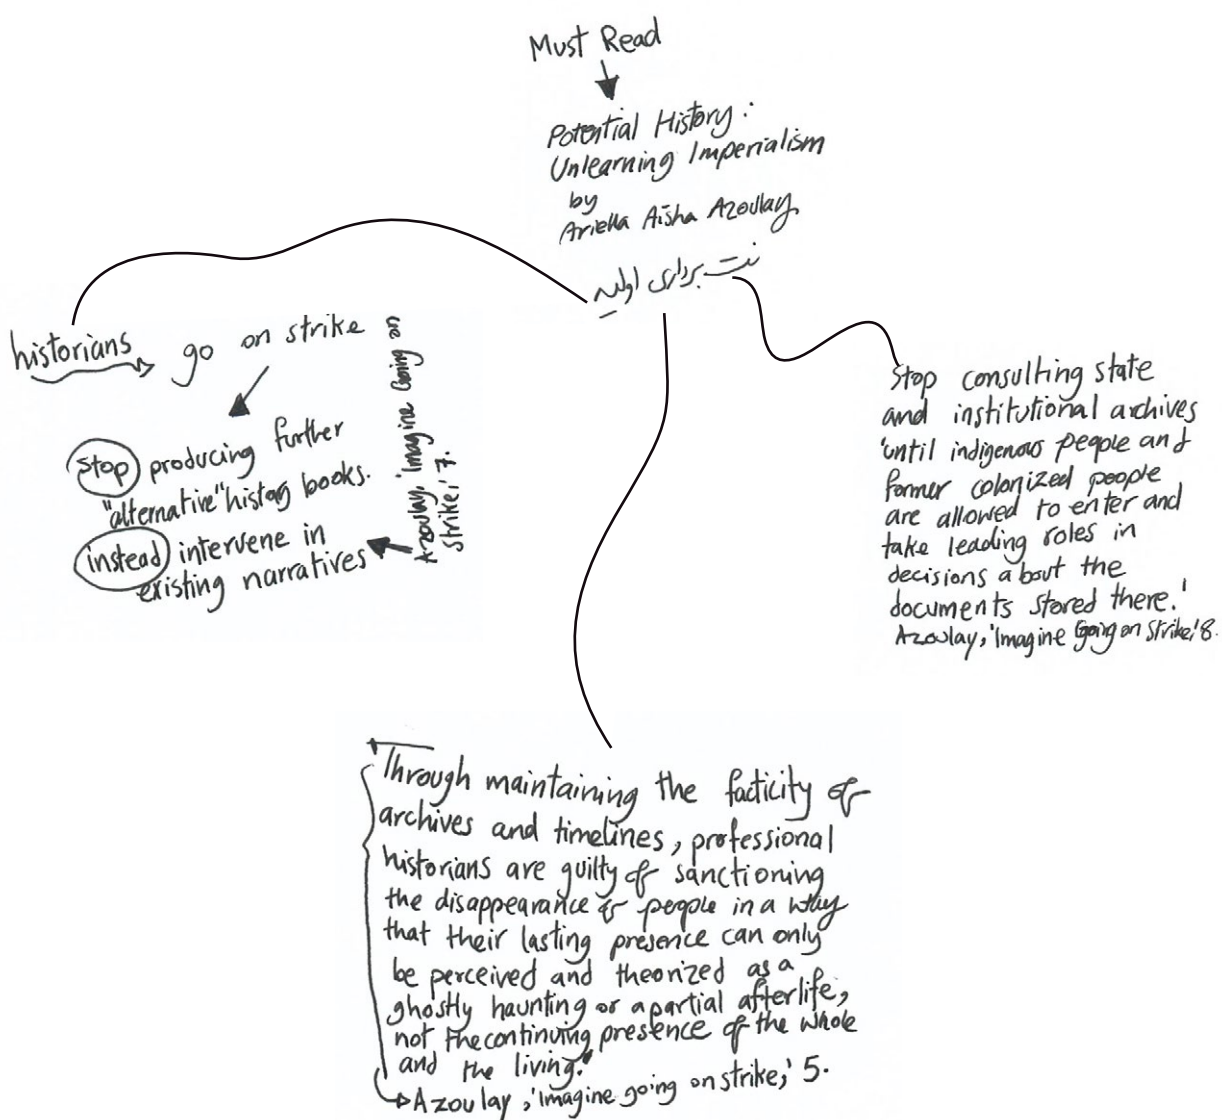 Must Read
Potential History:
Unlearning Imperialism
by
Ariella Aïsha Azoulay
نت برداری اولیه
historians go on strike
Stop producing further
"alternative" history books.
instead intervene in
existing narratives
Azoulay, 'Imagine Going on
Strike,' 7.
Stop consulting state
and institutional archives
'until indigenous people and
former colonized people
are allowed to enter and
take leading roles in
decisions about the
documents stored there.'
Azoulay, 'Imagine Going on Strike,' 8.
"Through maintaining the facticity of
archives and timelines, professional
historians are guilty of sanctioning
the disappearance of people in a way
that their lasting presence can only
be perceived and theorized as a
ghostly haunting or a partial afterlife,
not the continuing presence of the whole
and the living."
Azoulay, 'Imagine going on strike,' 5.